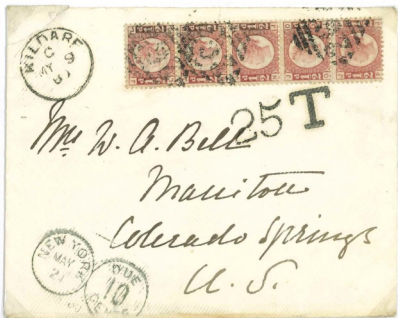 KILDARE
C
MY 9
81
25 T
Mrs W. A. Bell
Manitou
Colorado Springs
U. S.
NEW YORK
MAY
21
DUE
10
CENTS